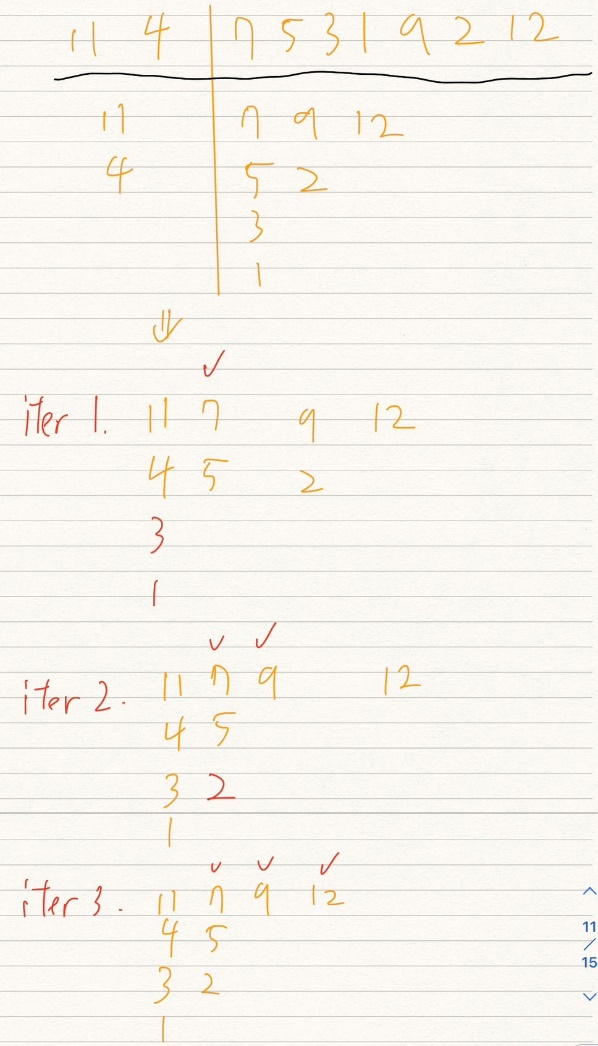 11 4 7 5 3 1 9 2 12
11 7 9 12
4 5 2
3
1
⇓
✓
iter 1. 11 7 9 12
4 5 2
3
1
✓ ✓
iter 2. 11 7 9 12
4 5
3 2
1
✓ ✓ ✓
iter 3. 11 7 9 12
4 5
3 2
1
11
/
15